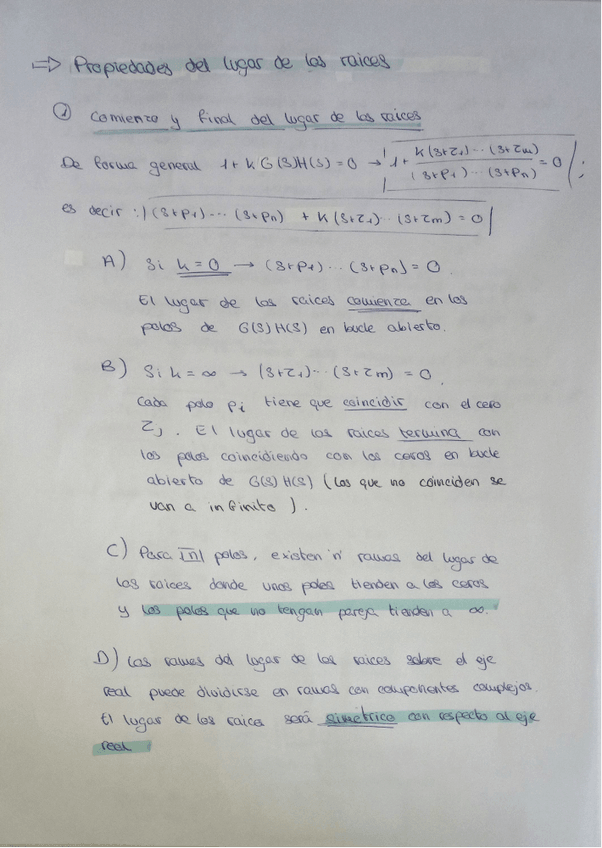 => Propiedades del lugar de las raices
① Comienzo y final del lugar de las raices
De forma general 1 + K G(s)H(s) = 0 → |1 + K(s+z1)...(s+zm) / (s+p1)...(s+pn) = 0|;
es decir: |(s+p1)...(s+pn) + K(s+z1)...(s+zm) = 0|
A) Si k = 0 → (s+p1)...(s+pn) = 0.
El lugar de las raices comienza en los
polos de G(s)H(s) en bucle abierto.
B) Si k = ∞ → (s+z1)...(s+zm) = 0.
Cada polo pi tiene que coincidir con el cero
zj. El lugar de las raices termina con
los polos coincidiendo con los ceros en bucle
abierto de G(s)H(s) (los que no coinciden se
van a infinito).
C) Para |n| polos, existen 'n' ramas del lugar de
las raices donde unos polos tienden a los ceros
y los polos que no tengan pareja tienden a ∞.
D) Las ramas del lugar de las raices sobre el eje
real puede dividirse en ramas con componentes complejos.
El lugar de las raices será simétrico con respecto al eje
real